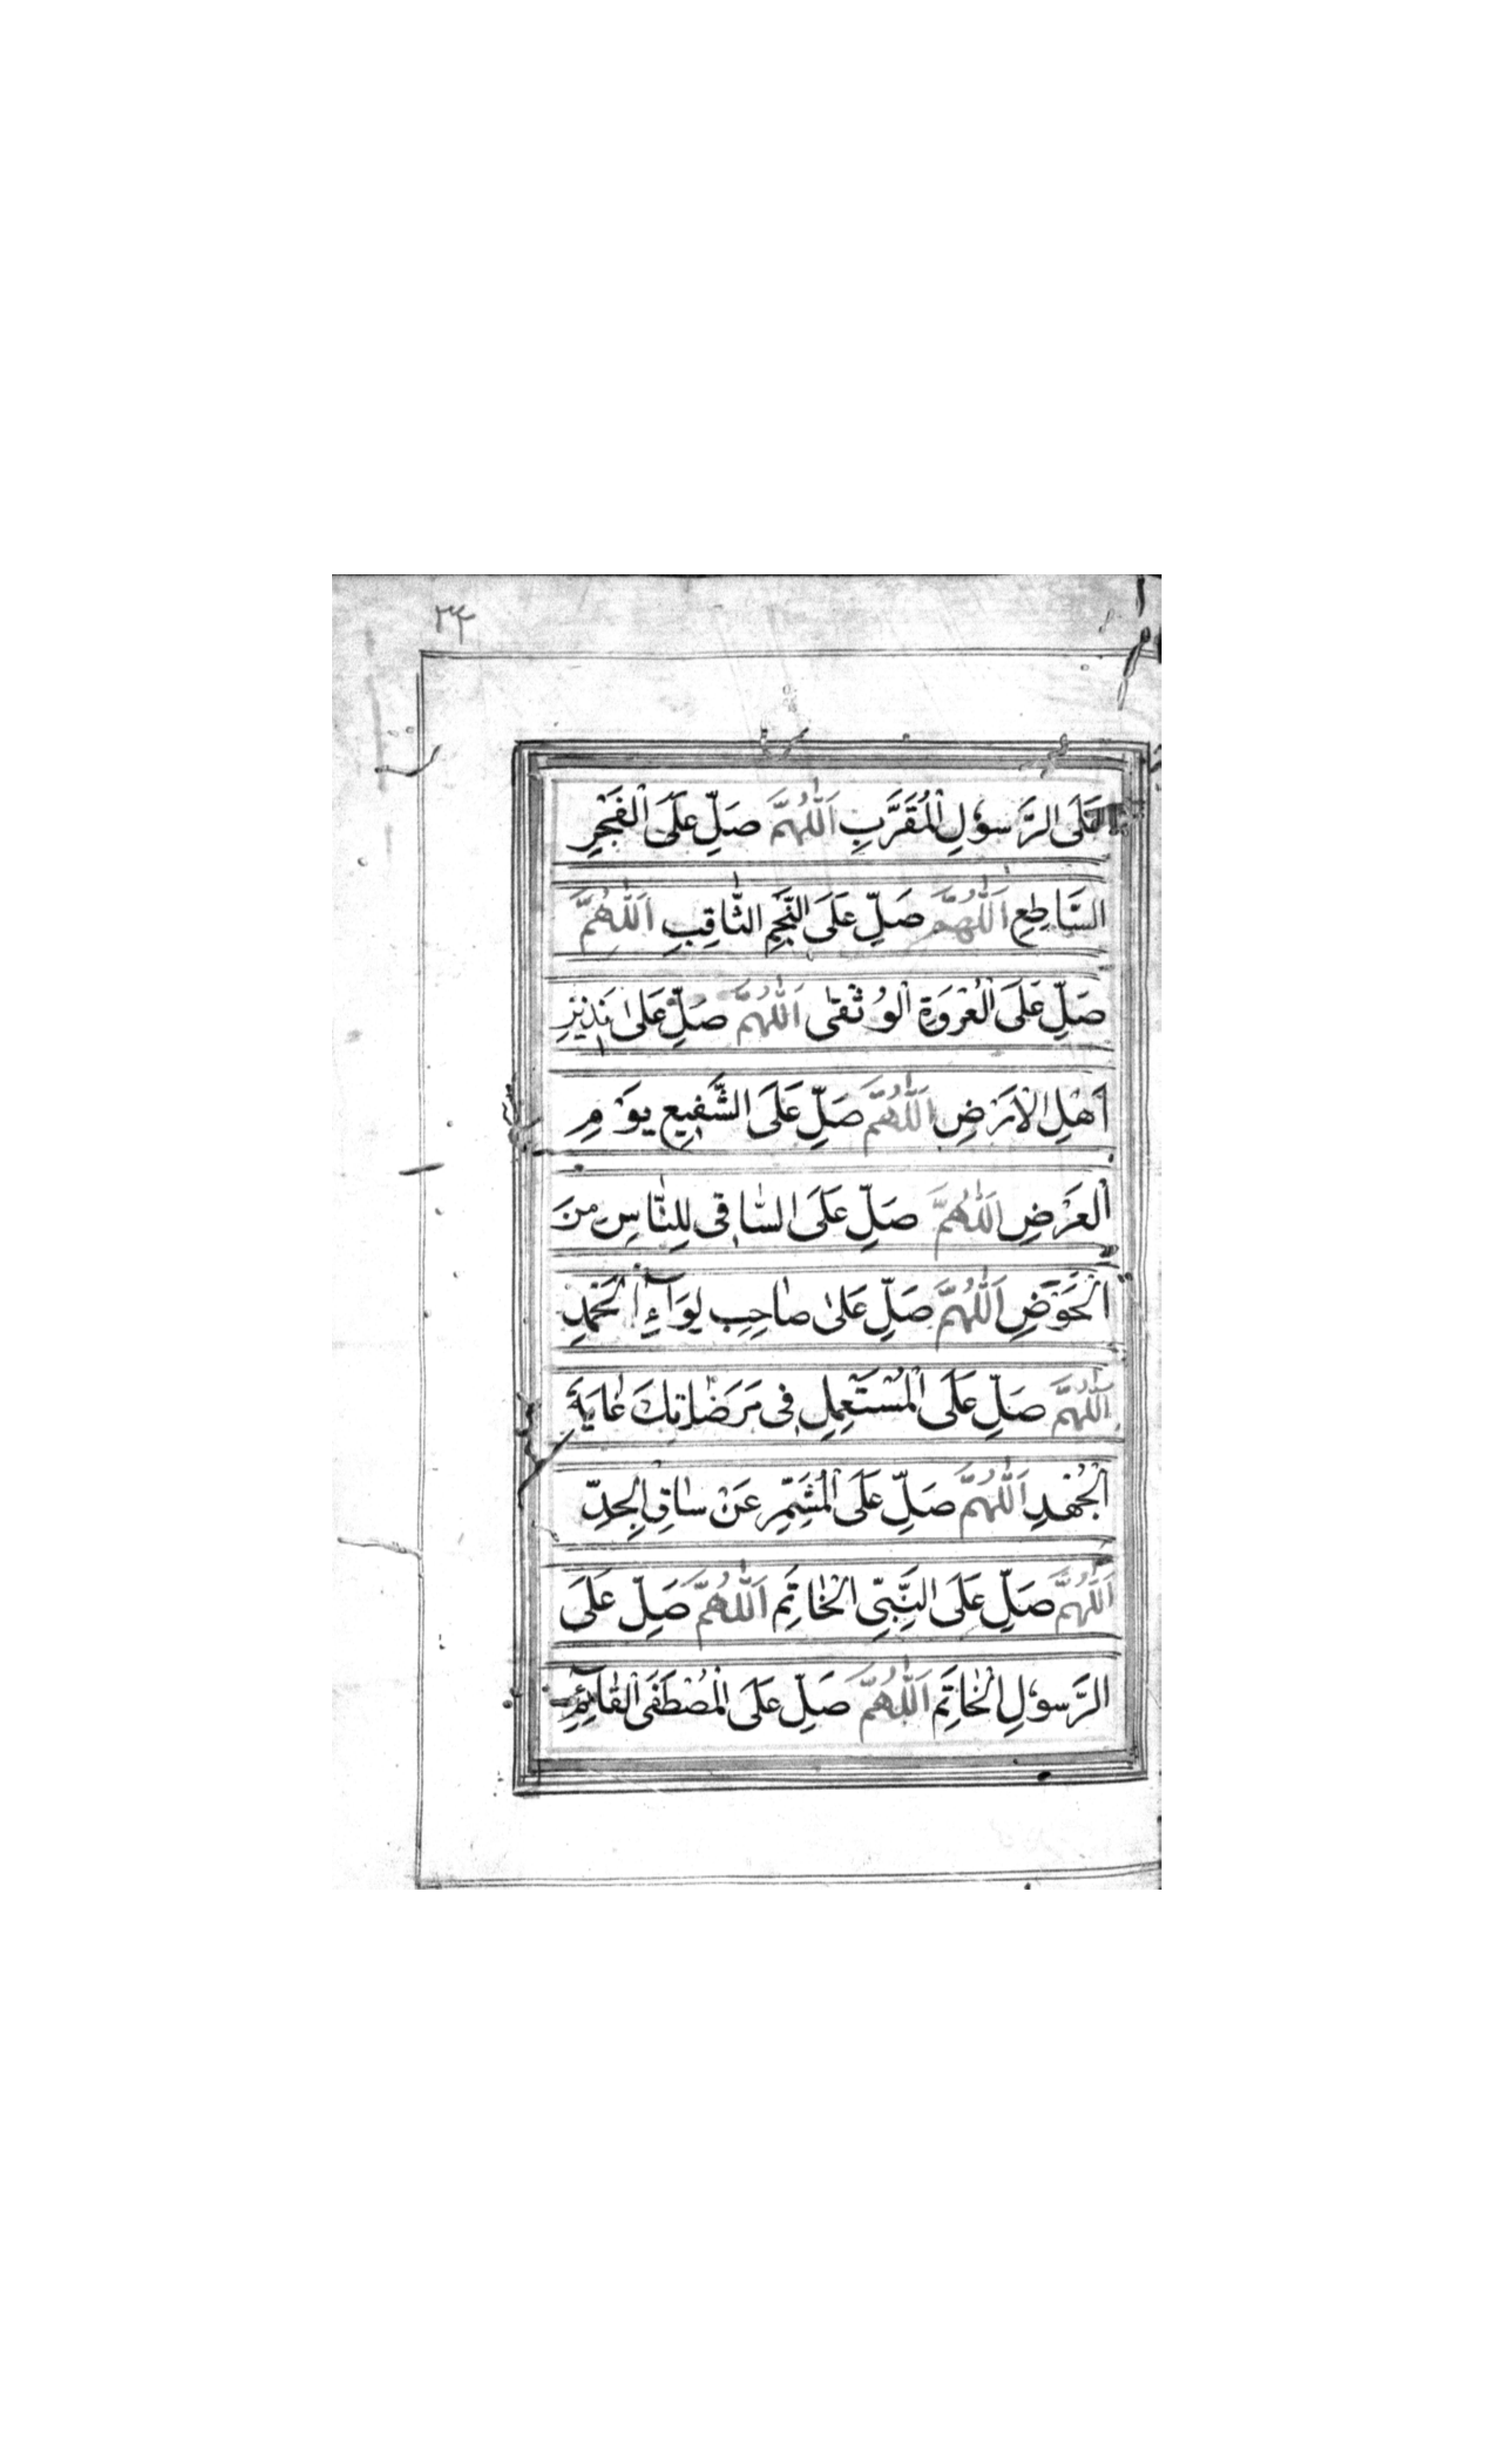 ۳۴
عَلَى الرَّسُوْلِ الْمُقَرَّبِ اَللّٰهُمَّ صَلِّ عَلَى الْفَجْرِ
السَّاطِعِ اَللّٰهُمَّ صَلِّ عَلَى النَّجْمِ الثَّاقِبِ اَللّٰهُمَّ
صَلِّ عَلَى الْعُرْوَةِ الْوُثْقٰى اَللّٰهُمَّ صَلِّ عَلٰى نَذِيْرِ
اَهْلِ الْاَرْضِ اَللّٰهُمَّ صَلِّ عَلَى الشَّفِيْعِ يَوْمِ
الْعَرْضِ اَللّٰهُمَّ صَلِّ عَلَى السَّاقِى لِلنَّاسِ مِنَ
الْحَوْضِ اَللّٰهُمَّ صَلِّ عَلٰى صَاحِبِ لِوَآءِ الْحَمْدِ
اَللّٰهُمَّ صَلِّ عَلَى الْمُسْتَعْمِلِ فِى مَرَضَاتِكَ غَايَةَ
الْجُهْدِ اَللّٰهُمَّ صَلِّ عَلَى الْمُشَمِّرِ عَنْ سَاقِ الْجِدِّ
اَللّٰهُمَّ صَلِّ عَلَى النَّبِىِّ الْخَاتِمِ اَللّٰهُمَّ صَلِّ عَلَى
الرَّسُوْلِ الْخَاتِمِ اَللّٰهُمَّ صَلِّ عَلَى الْمُصْطَفَى الْقَآئِمِ